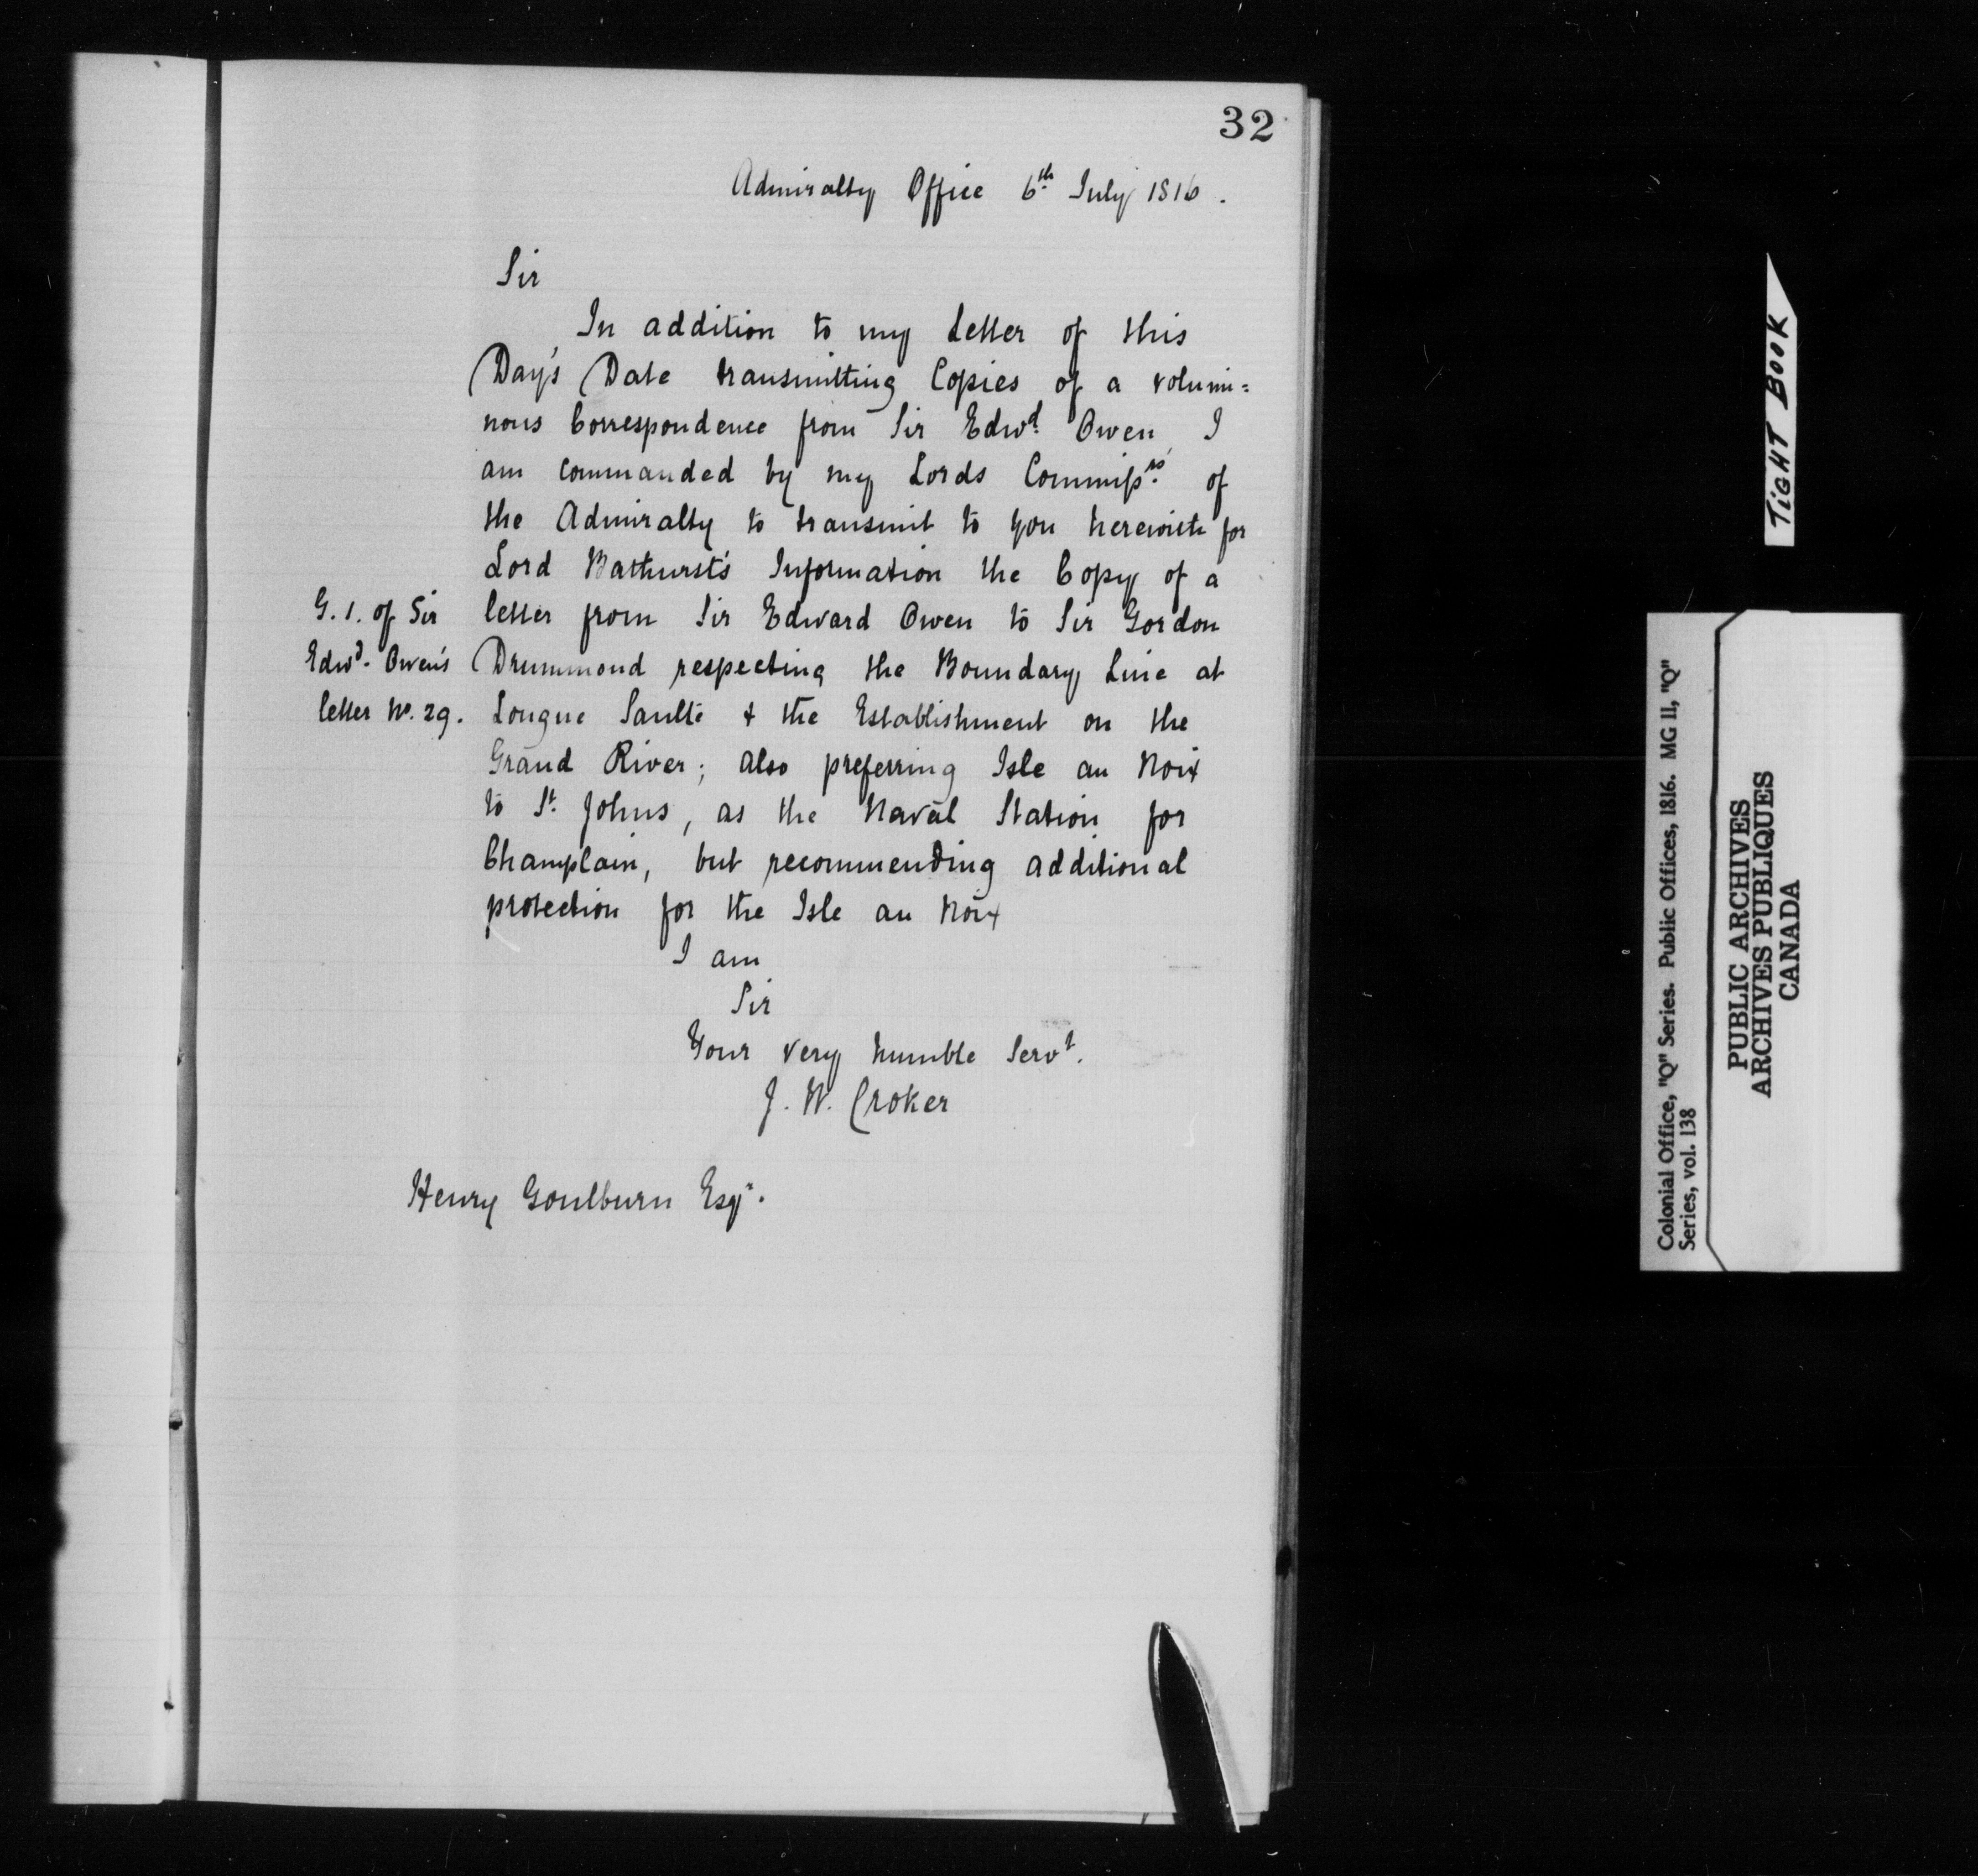 32
Admiralty Office 6th July 1816.
Sir
In addition to my Letter of this
Day's Date transmitting Copies of a volumi=
nous Correspondence from Sir Edwd. Owen, I
am commanded by my Lords Commissrs. of
the Admiralty to transmit to you herewith for
Lord Bathurst's Information the Copy of a
G. 1. of Sir letter from Sir Edward Owen to Sir Gordon
Edwd. Owen's Drummond respecting the Boundary Line at
letter No. 29. Longue Saulte & the Establishment on the
Grand River; also preferring Isle au Noix
to St. Johns, as the Naval Station for
Champlain, but recommending additional
protection for the Isle au Noix
I am
Sir
Your very humble Servt.
J. W. Croker
Henry Goulburn Esqr.
TIGHT BOOK
Colonial Office, "Q" Series. Public Offices, 1816. MG 11, "Q"
Series, vol. 138
PUBLIC ARCHIVES
ARCHIVES PUBLIQUES
CANADA